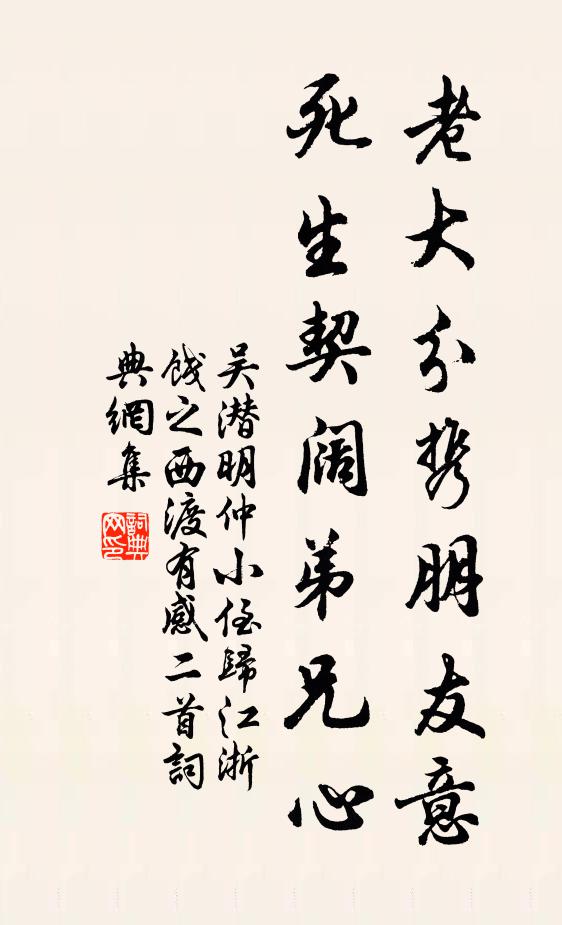 老大分携朋友意
死生契阔弟兄心
吴潜明仲小侄歸江浙
餞之西渡有感二首詞
典網集
詞典
网印